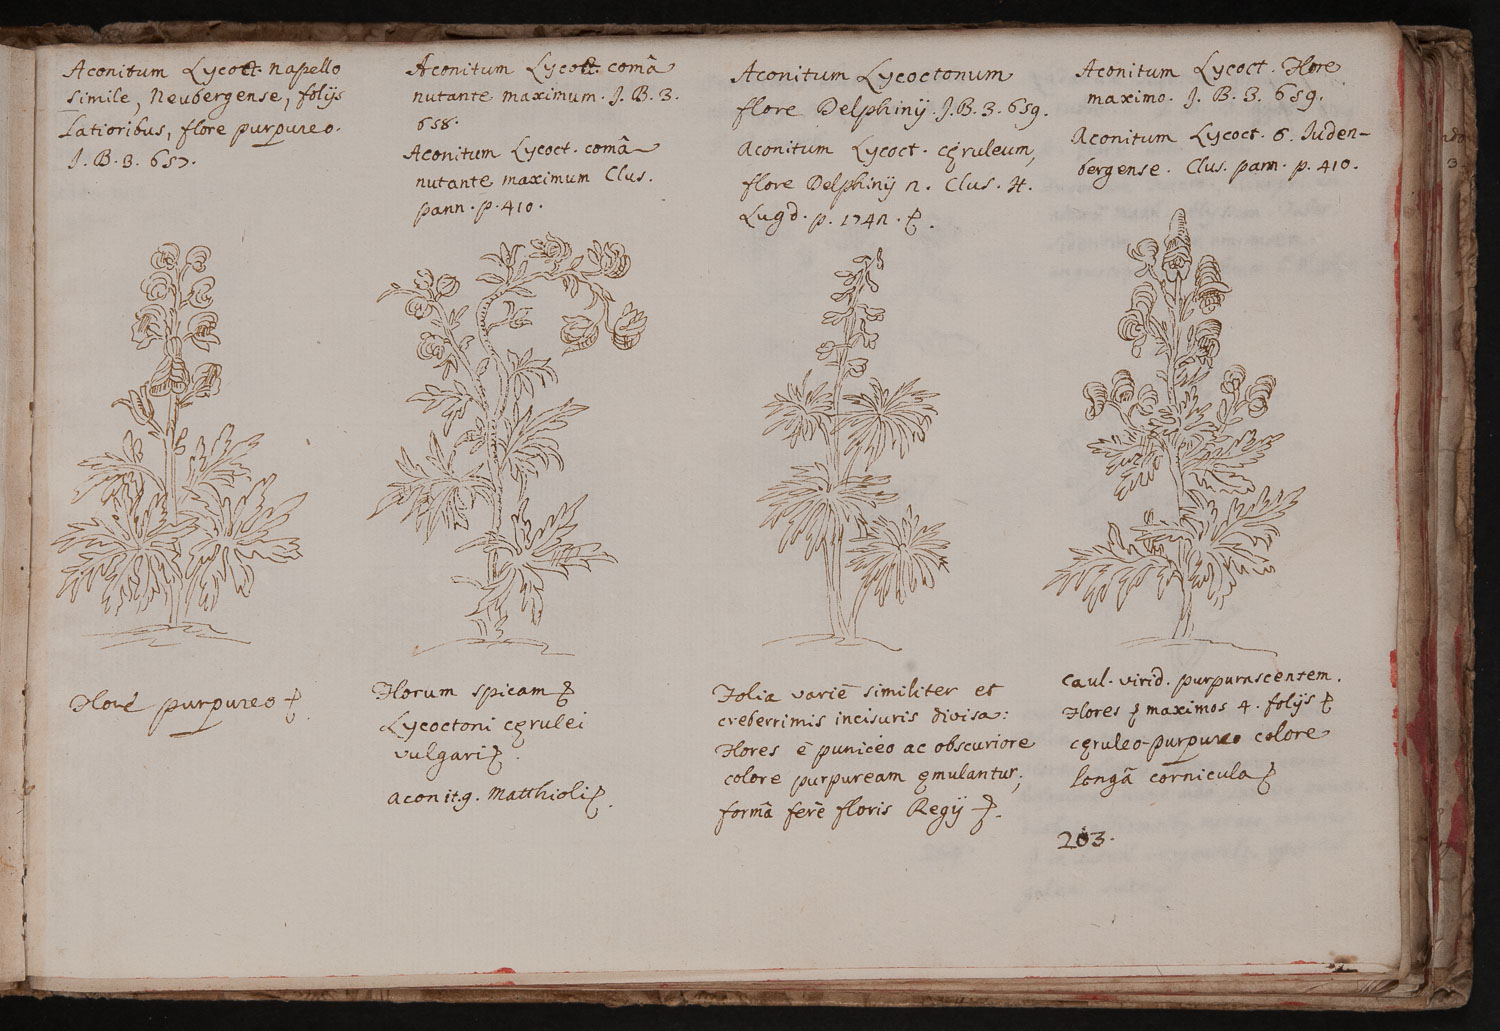 Aconitum Lycoct. napello
simile, Neubergense, folijs
latioribus, flore purpureo.
J. B. 3. 657.
Aconitum Lycoct. comâ
nutante maximum. J. B. 3.
658.
Aconitum Lycoct. comâ
nutante maximum Clus.
pann. p. 410.
Aconitum Lycoctonum
flore Delphinij. J. B. 3. 659.
Aconitum Lycoct. cęruleum,
flore Delphinij n. Clus. H.
Lugd. p. 1742.
Aconitum Lycoct. Flore
maximo. J. B. 3. 659.
Aconitum Lycoct. 6. Juden-
bergense. Clus. pann. p. 410.
Flore purpureo
Florum spicam
Lycoctoni cęrulei
vulgari
aconit9. Matthioli
Folia variè similiter et
creberrimis incisuris divisa:
Flores è puniceo ac obscuriore
colore purpuream ęmulantur;
formâ ferè floris Regij
Caul. virid. purpurascentem.
Flores maximos 4. folijs
cęruleo-purpureo colore
longâ cornicula
203.